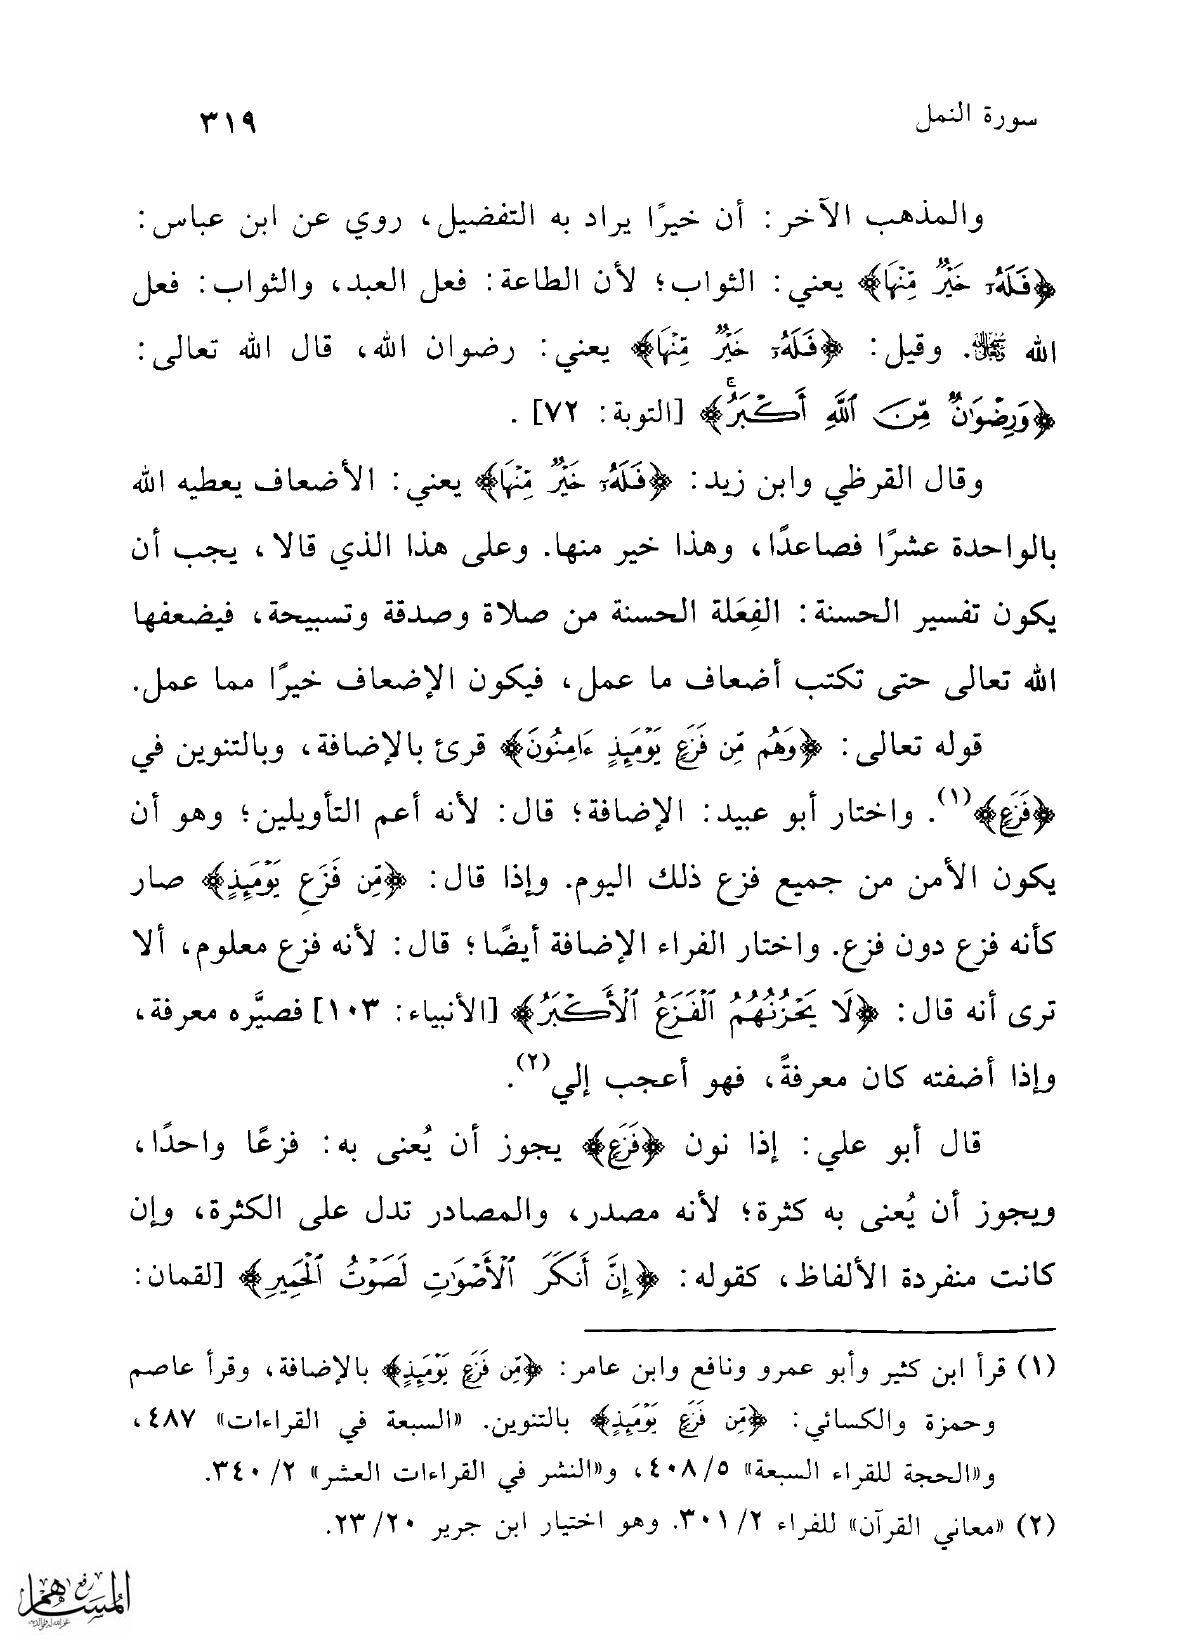 سورة النمل ٣١٩
والمذهب الآخر: أن خيرًا يراد به التفضيل، روي عن ابن عباس:
﴿فَلَهُۥ خَيْرٌ مِّنْهَا﴾ يعني: الثواب؛ لأن الطاعة: فعل العبد، والثواب: فعل
الله ﷻ. وقيل: ﴿فَلَهُۥ خَيْرٌ مِّنْهَا﴾ يعني: رضوان الله، قال الله تعالى:
﴿وَرِضْوَٰنٌ مِّنَ ٱللَّهِ أَكْبَرُۚ﴾ [التوبة: ٧٢].
وقال القرظي وابن زيد: ﴿فَلَهُۥ خَيْرٌ مِّنْهَا﴾ يعني: الأضعاف يعطيه الله
بالواحدة عشرًا فصاعدًا، وهذا خير منها. وعلى هذا الذي قالا، يجب أن
يكون تفسير الحسنة: الفِعَلة الحسنة من صلاة وصدقة وتسبيحة، فيضعفها
الله تعالى حتى تكتب أضعاف ما عمل، فيكون الإضعاف خيرًا مما عمل.
قوله تعالى: ﴿وَهُم مِّن فَزَعٍ يَوْمَئِذٍ ءَامِنُونَ﴾ قرئ بالإضافة، وبالتنوين في
﴿فَزَعٍ﴾(١). واختار أبو عبيد: الإضافة؛ قال: لأنه أعم التأويلين؛ وهو أن
يكون الأمن من جميع فزع ذلك اليوم. وإذا قال: ﴿مِّن فَزَعٍ يَوْمَئِذٍ﴾ صار
كأنه فزع دون فزع. واختار الفراء الإضافة أيضًا؛ قال: لأنه فزع معلوم، ألا
ترى أنه قال: ﴿لَا يَحْزُنُهُمُ ٱلْفَزَعُ ٱلْأَكْبَرُ﴾ [الأنبياء: ١٠٣] فصيَّره معرفة،
وإذا أضفته كان معرفةً، فهو أعجب إلي(٢).
قال أبو علي: إذا نون ﴿فَزَعٍ﴾ يجوز أن يُعنى به: فزعًا واحدًا،
ويجوز أن يُعنى به كثرة؛ لأنه مصدر، والمصادر تدل على الكثرة، وإن
كانت منفردة الألفاظ، كقوله: ﴿إِنَّ أَنكَرَ ٱلْأَصْوَٰتِ لَصَوْتُ ٱلْحَمِيرِ﴾ [لقمان:
(١) قرأ ابن كثير وأبو عمرو ونافع وابن عامر: ﴿مِّن فَزَعِ يَوْمَئِذٍ﴾ بالإضافة، وقرأ عاصم
وحمزة والكسائي: ﴿مِّن فَزَعٍ يَوْمَئِذٍ﴾ بالتنوين. «السبعة في القراءات» ٤٨٧،
و«الحجة للقراء السبعة» ٤٠٨/٥، و«النشر في القراءات العشر» ٣٤٠/٢.
(٢) «معاني القرآن» للفراء ٣٠١/٢. وهو اختيار ابن جرير ٢٣/٢٠.
رفع
المساهم